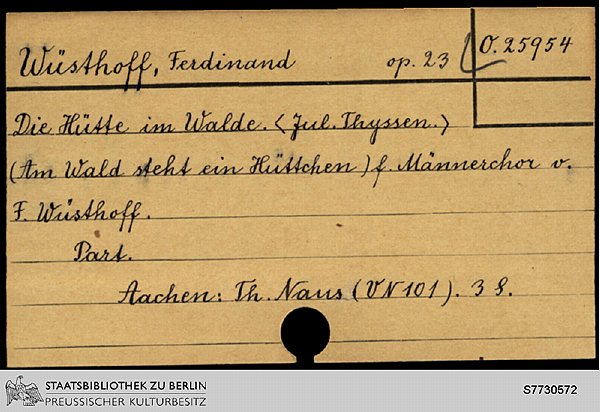 Wüsthoff, Ferdinand op. 23 O. 25954
Die Hütte im Walde. <Jul. Thyssen.>
(Am Wald steht ein Hüttchen) f. Männerchor v.
F. Wüsthoff.
Part.
Aachen: Th. Naus (VN 101). 3 S.
STAATSBIBLIOTHEK ZU BERLIN
PREUSSISCHER KULTURBESITZ
S7730572